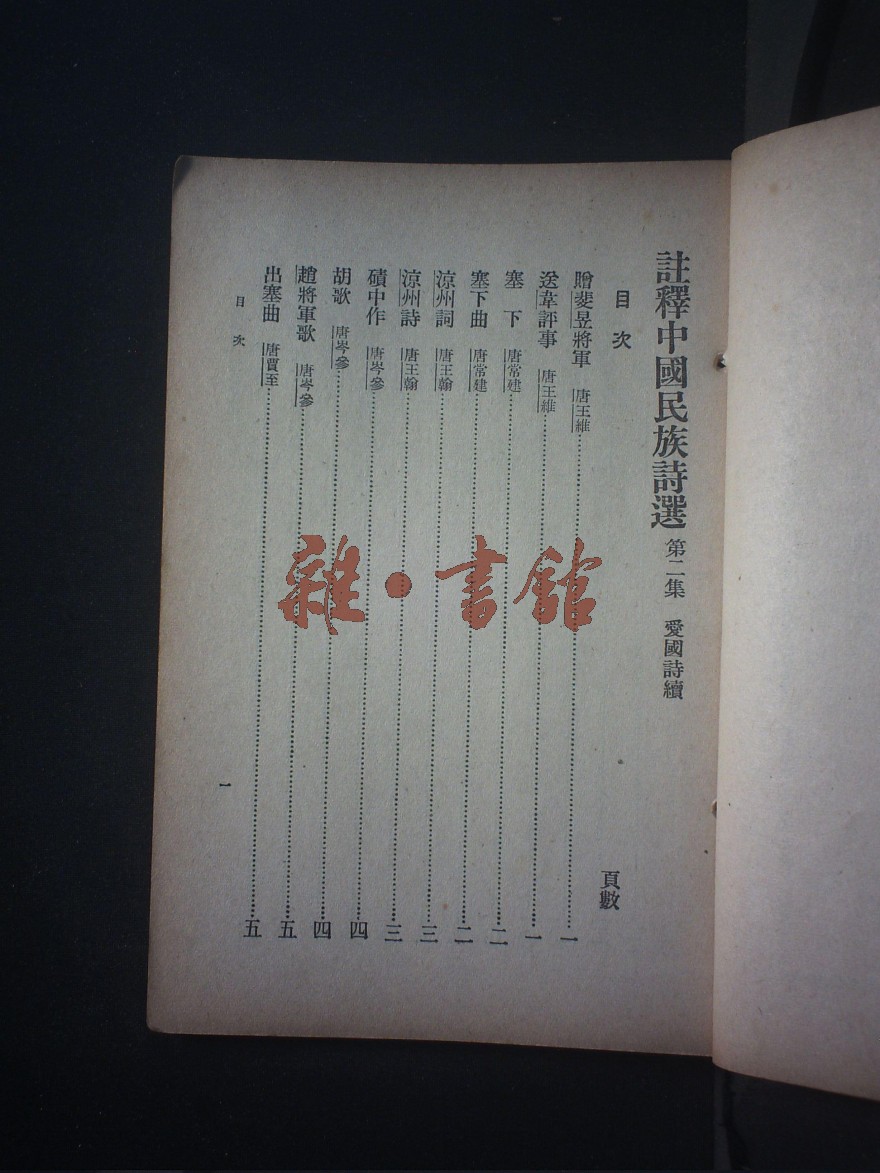 註釋中國民族詩選 第二集 愛國詩續
目次
頁數
贈裴旻將軍 唐王維 一
送韋評事 唐王維 一
塞下 唐常建 二
塞下曲 唐常建 二
涼州詞 唐王翰 三
涼州詩 唐王翰 三
磧中作 唐岑參 四
胡歌 唐岑參 四
趙將軍歌 唐岑參 五
出塞曲 唐賈至 五
目次
一
雜·書館